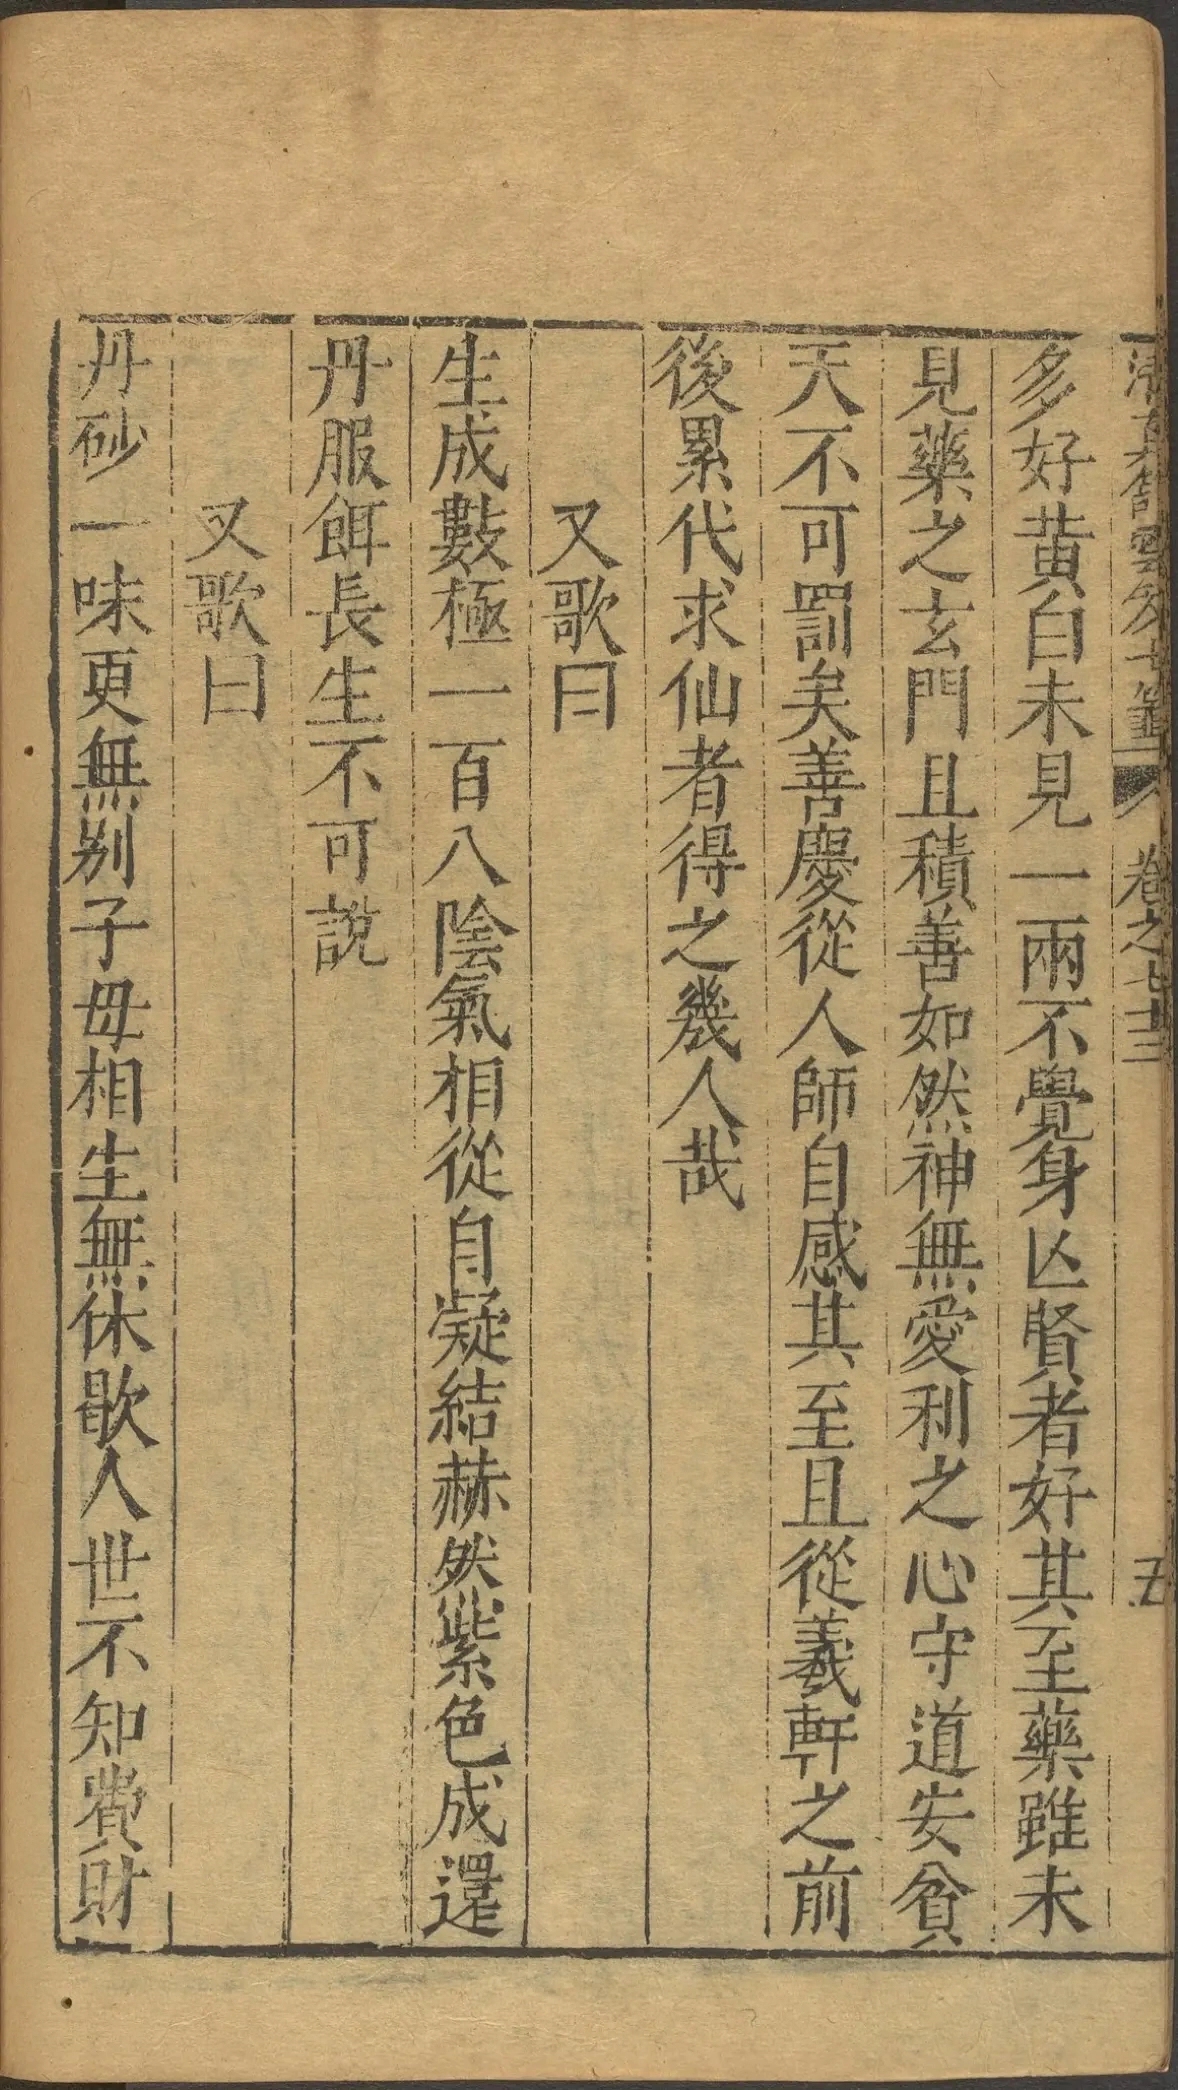 清真館雲笈七籤 卷之七十三 五
多好黄白未見一兩不覺身亾賢者好其至藥雖未
見藥之玄門且積善如然神無愛利之心守道安貧
天不可罰矣善慶從人師自感其至且從羲軒之前
後累代求仙者得之幾人哉
又歌曰
生成數極一百八陰氣相從自凝結赫然紫色成還
丹服餌長生不可說
又歌曰
丹砂一味更無别子母相生無休歇人世不知費財